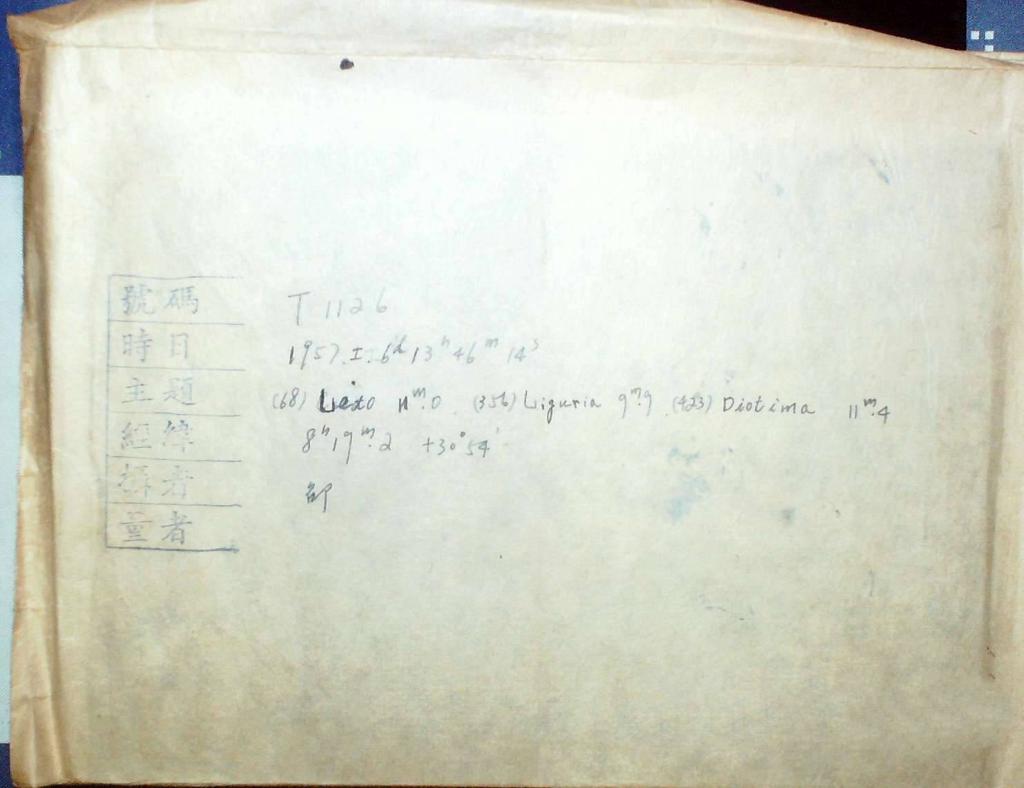 號碼 T 1126
時日 1957. I. 6ᵈ 13ʰ 46ᵐ 14ˢ
主題 (68) Leto 11ᵐ.0 (356) Liguria 9ᵐ.9 (423) Diotima 11ᵐ.4
經緯 8ʰ 19ᵐ.2 +30°54'
攝者
量者